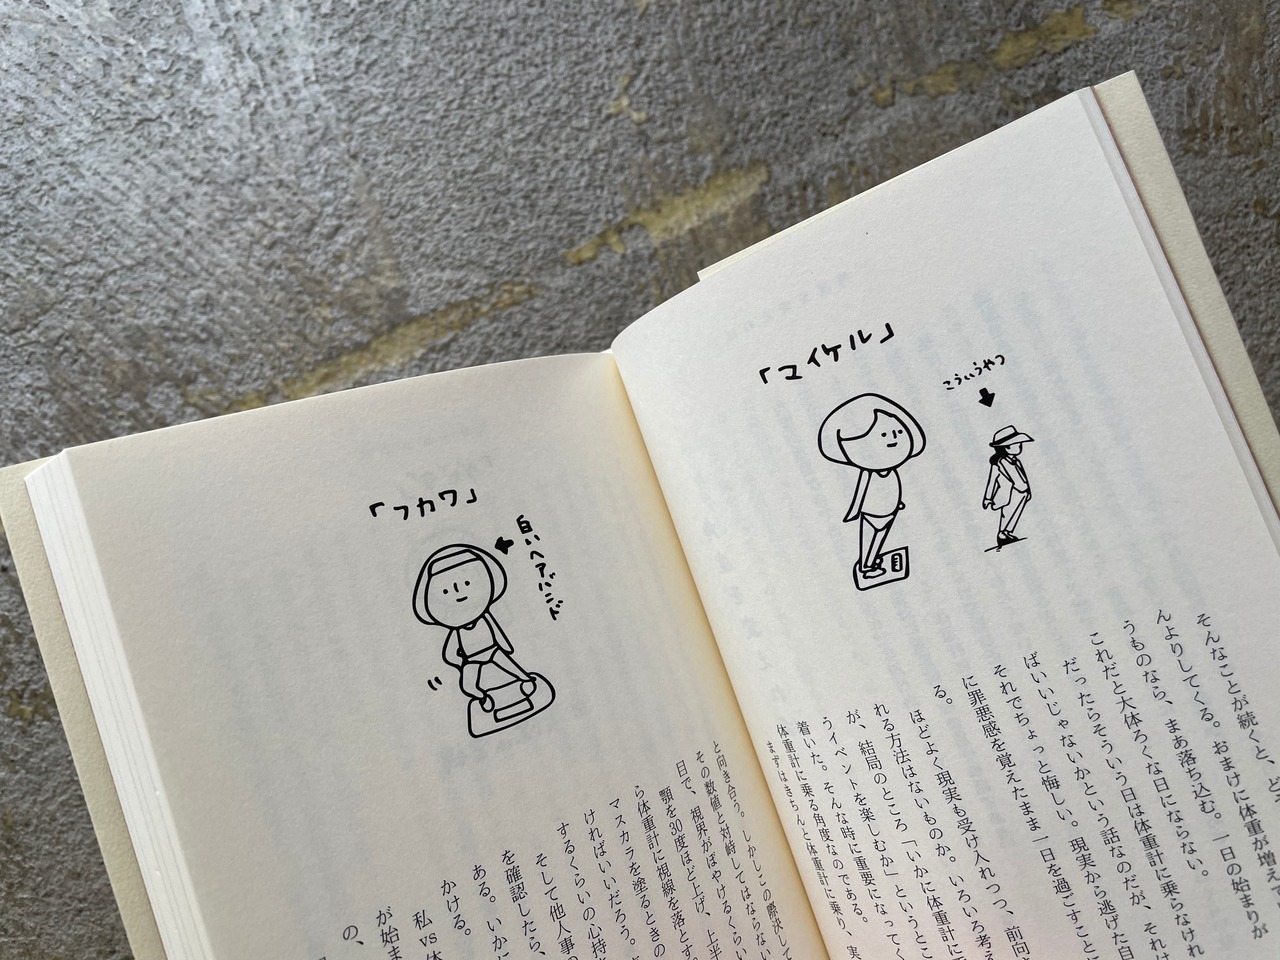 「マイケル」
こういうやつ
そんなことが続くと、ど
んよりしてくる。おまけに体重が増えて
うものなら、まあ落ち込む。一日の始まりが
これだと大体ろくな日にならない。
だったらそういう日は体重計に乗らなけれ
ばいいじゃないかという話なのだが、それは
それでちょっと悔しい。現実から逃げた自
に罪悪感を覚えたまま一日を過ごすことに
る。
ほどよく現実も受け入れつつ、前向
れる方法はないものか。いろいろ考え
が、結局のところ「いかに体重計に
うイベントを楽しむか」というとこ
着いた。そんな時に重要になってく
体重計に乗る角度なのである。
まずはきちんと体重計に乗り、実
「フカワ」
白いヘアバンド
と向き合う。しかしこの際決して
その数値と対峙してはならない
日で、視界がぼやけるくらい
顎を30度ほど上げ、上半
ら体重計に視線を落とす。
マスカラを塗るときの
ければいいだろう。
するくらいの心持
そして他人事の
を確認したら、
ある。いかに
かける。
私vs体
が始ま
の、